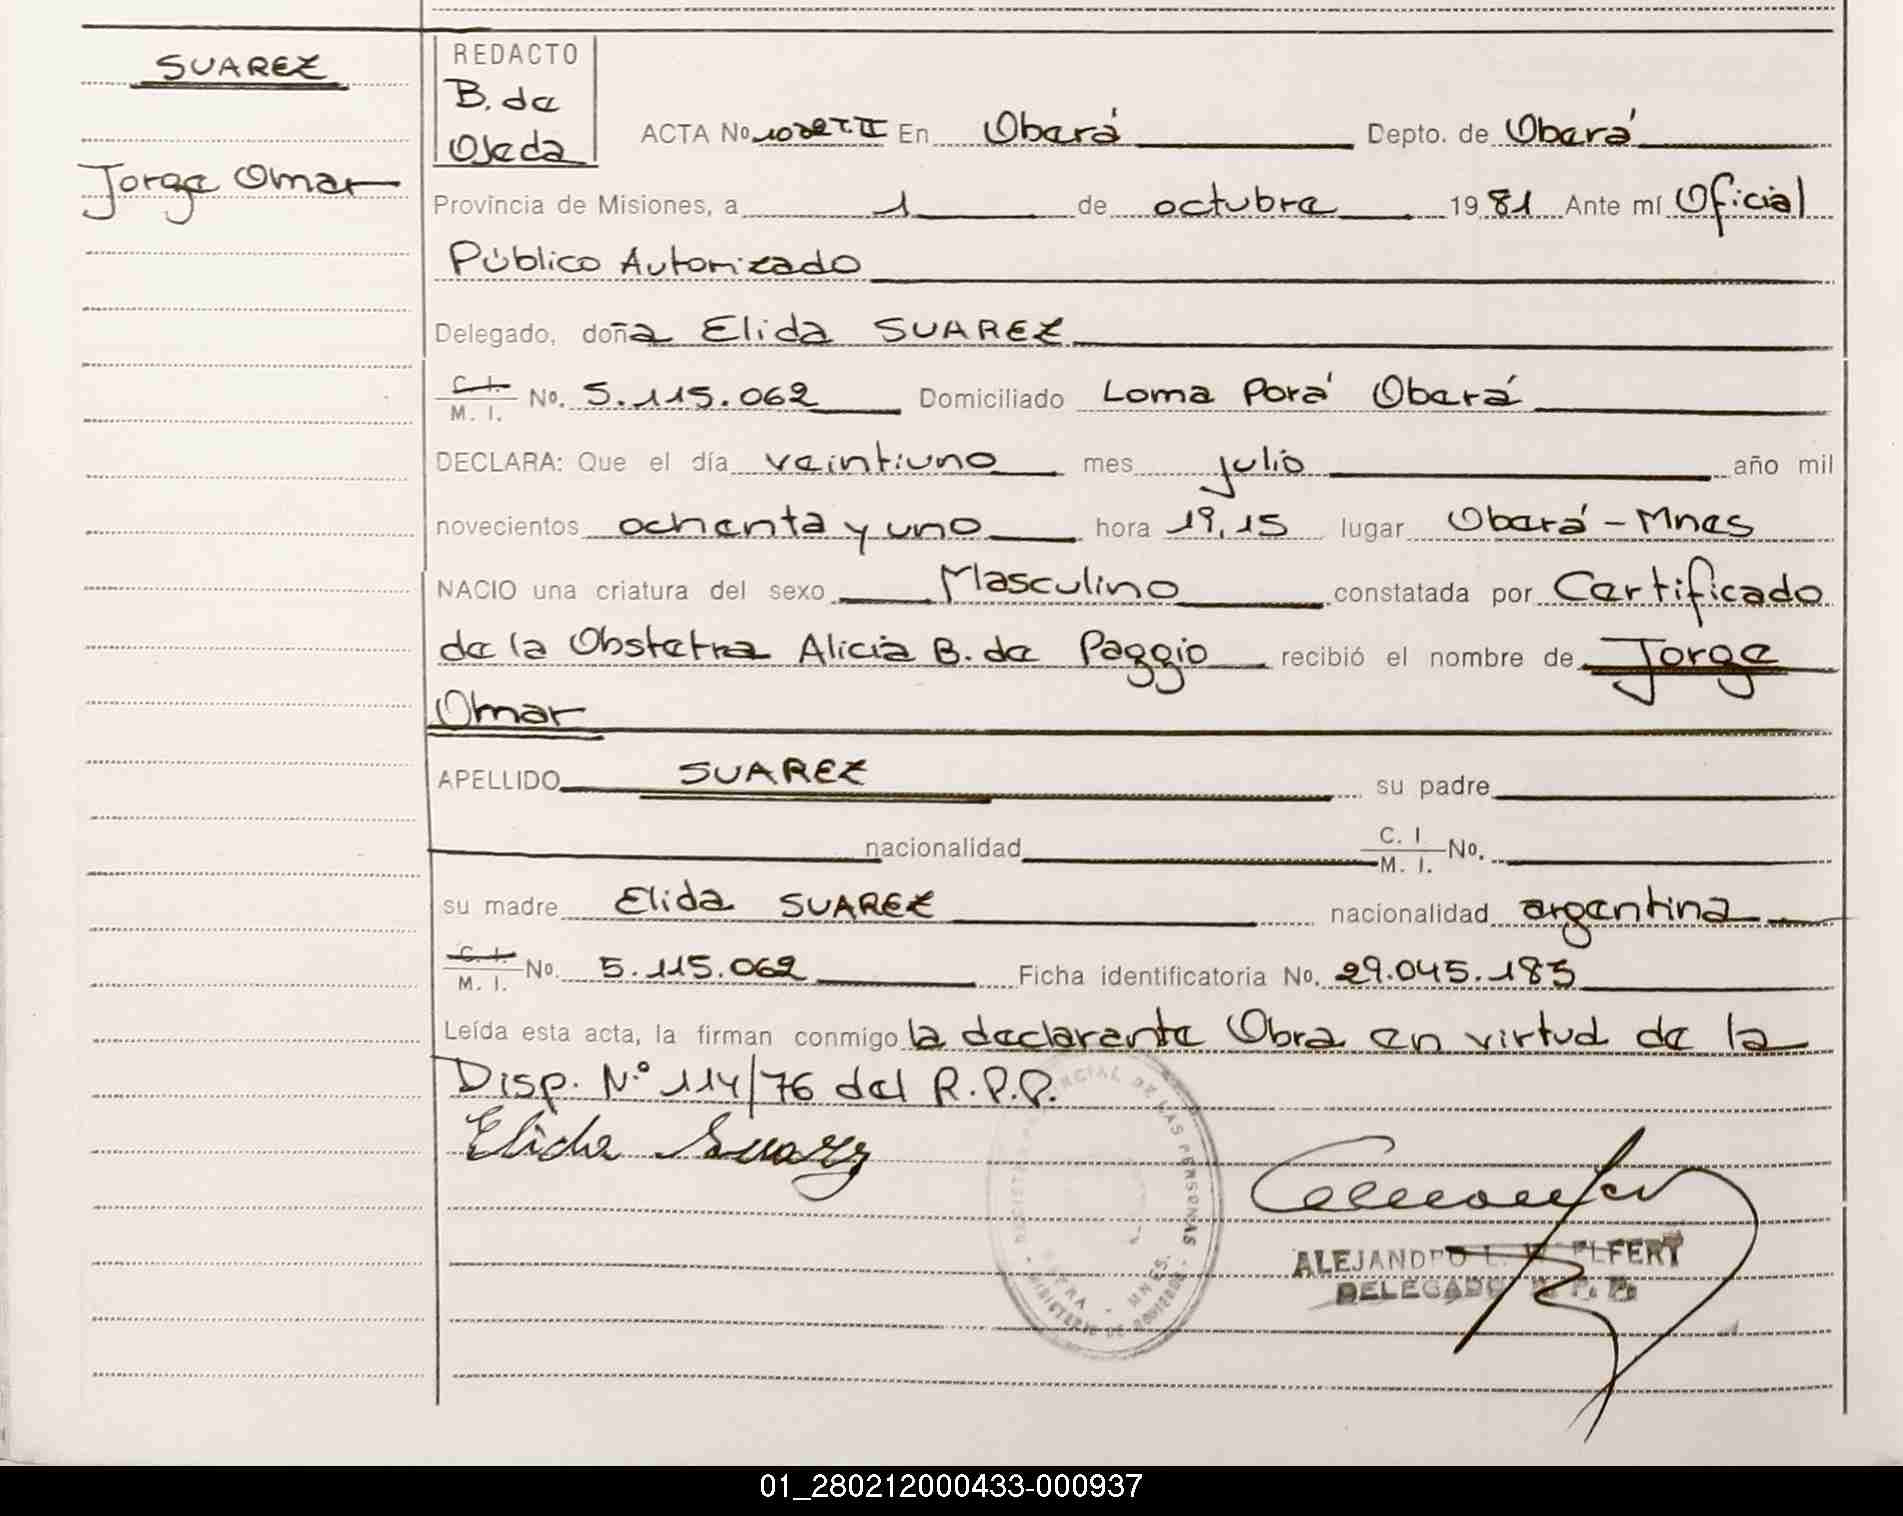 SUAREZ
Jorge Omar
REDACTO
B. de
Ojeda
ACTA No. T.II En Oberá Depto. de Oberá
Provincia de Misiones, a 1 de octubre 1981 Ante mí Oficial
Público Autorizado
Delegado, doña Elida SUAREZ
C. I.
M. I. No. 5.115.062 Domiciliado Loma Porá Oberá
DECLARA: Que el día veintiuno mes julio año mil
novecientos ochenta y uno hora 19,15 lugar Oberá - Mnes
NACIO una criatura del sexo Masculino constatada por Certificado
de la Obstetra Alicia B. de Paggio recibió el nombre de Jorge
Omar
APELLIDO SUAREZ su padre
nacionalidad C. I
M. I. No.
su madre Elida SUAREZ nacionalidad argentina
C. I.
M. I. No. 5.115.062 Ficha identificatoria No. 29.045.183
Leída esta acta, la firman conmigo la declarante Obra en virtud de la
Disp. N.º 114/76 del R.P.P.
Elida Suarez
DE LAS PERSONAS
MINISTERIO DE GOBIERNO
MNES.
ALEJANDRO L.
DELEGADO R. P. P.
01_280212000433-000937